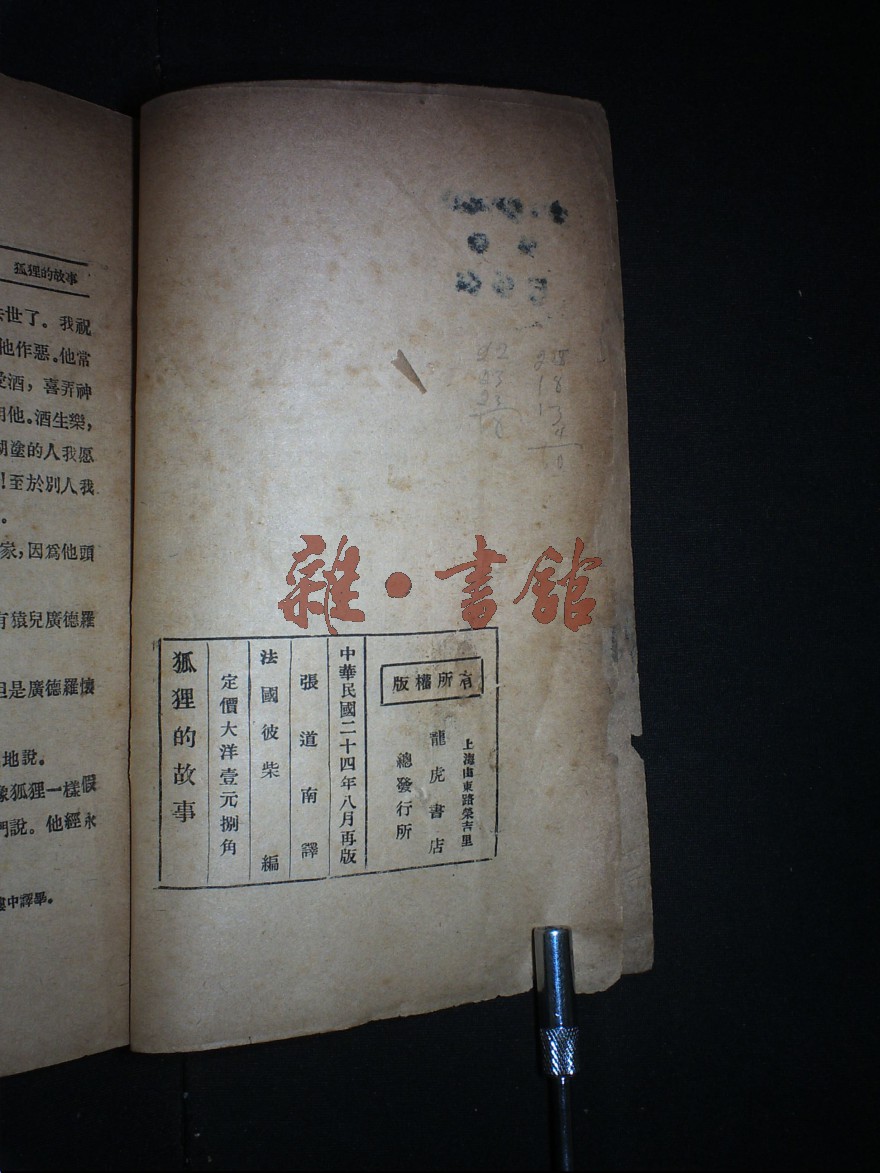 狐狸的故事
去世了。我祝
他作惡。他常
愛酒，喜弄神
用他。酒生樂，
胡塗的人我愿
！至於別人我
。
家，因爲他頭
有猿兒廣德羅
但是廣德羅懷
地說。
像狐狸一樣假
們說。他經永
樓中譯畢。
雜·書館
有所權版
上海山東路榮吉里
龍虎書店
總發行所
中華民國二十四年八月再版
張道南譯
法國彼柴編
定價大洋壹元捌角
狐狸的故事